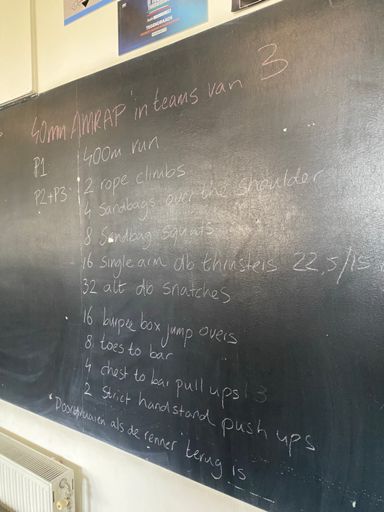 40min AMRAP in teams van 3
P1 400m run
P2+P3 2 rope climbs
4 Sandbags over the shoulder
8 Sandbag squats
16 single arm db thrusters 22,5/15
32 alt db snatches
16 burpee box jump overs
8 toes to bar
4 chest to bar pull ups
2 strict handstand push ups
als de renner terug is